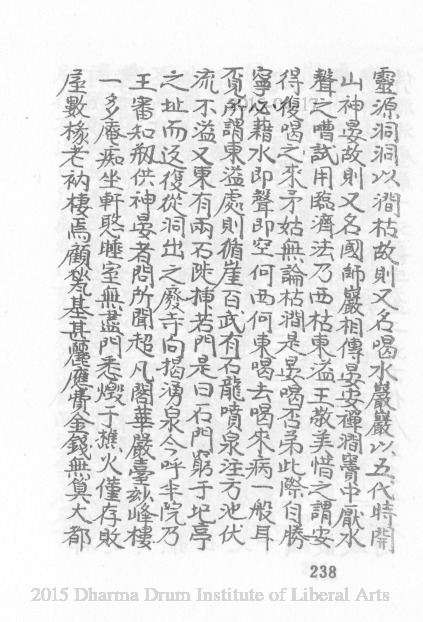 靈源洞洞以澗枯故則又名喝水巖巖以五代時開
山神晏故則又名國師巖相傳晏安禪澗竇中厭水
聲之嘈試用臨濟法乃西枯東溢王敬美惜之謂安
得復喝之來矛姑無論枯澗是晏喝否弟此際自勝
寧必藉水即聲即空何西何東喝去喝來病一般耳
覓所謂東溢處則循崖百武有石龍噴泉注方池伏
流不溢又東有兩石陡插若門是曰石門窮于圯亭
之址而返復從洞出之廢寺向揭湧泉今呼半院乃
王審知剏供神晏者問所聞超凡閣華嚴臺玅峰樓
一多廢痴坐軒憨睡室無盡門悉燬于樵火僅存敗
屋數椽老衲棲焉顧甃基甚麗應費金錢無算大都
238
2015 Dharma Drum Institute of Liberal Arts